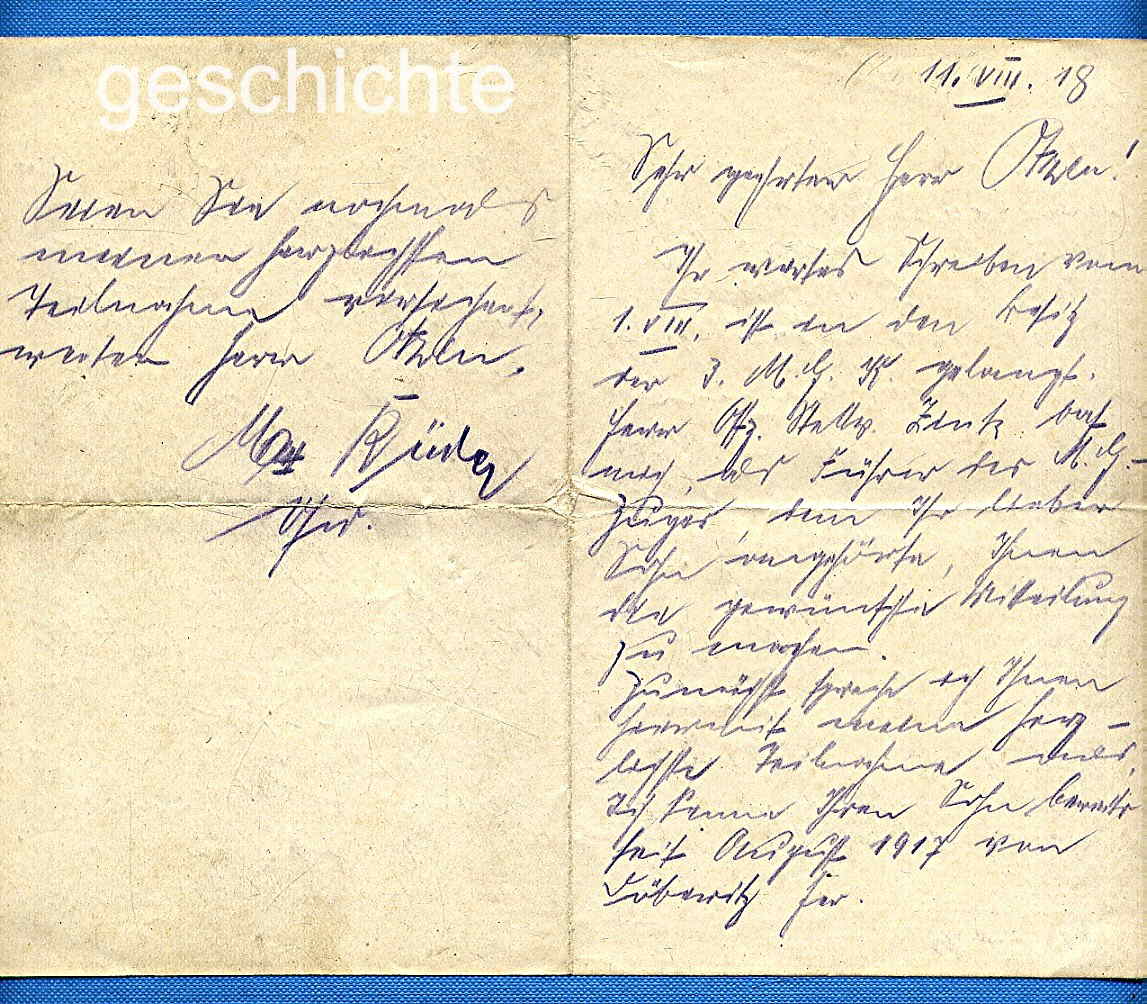 geschichte
11. VIII. 18
Sehr geehrter Herr
Ihr wertes Schreiben vom
1. VIII. ist in den Besitz
der 3. M. G. K. gelangt.
Herr Offz. Stellv. Zink bat
mich, als Führer des M. G.-
Zuges, dem Ihr lieber
Sohn angehörte, Ihnen
die gewünschte Mitteilung
zu machen.
Zunächst spreche ich Ihnen
hiermit meine herz-
lichste Teilnahme aus.
Ich kenne Ihren Sohn bereits
seit August 1917 von
Döberitz her.
Seien Sie nochmals
meiner herzlichsten
Teilnahme versichert,
werter Herr
Max